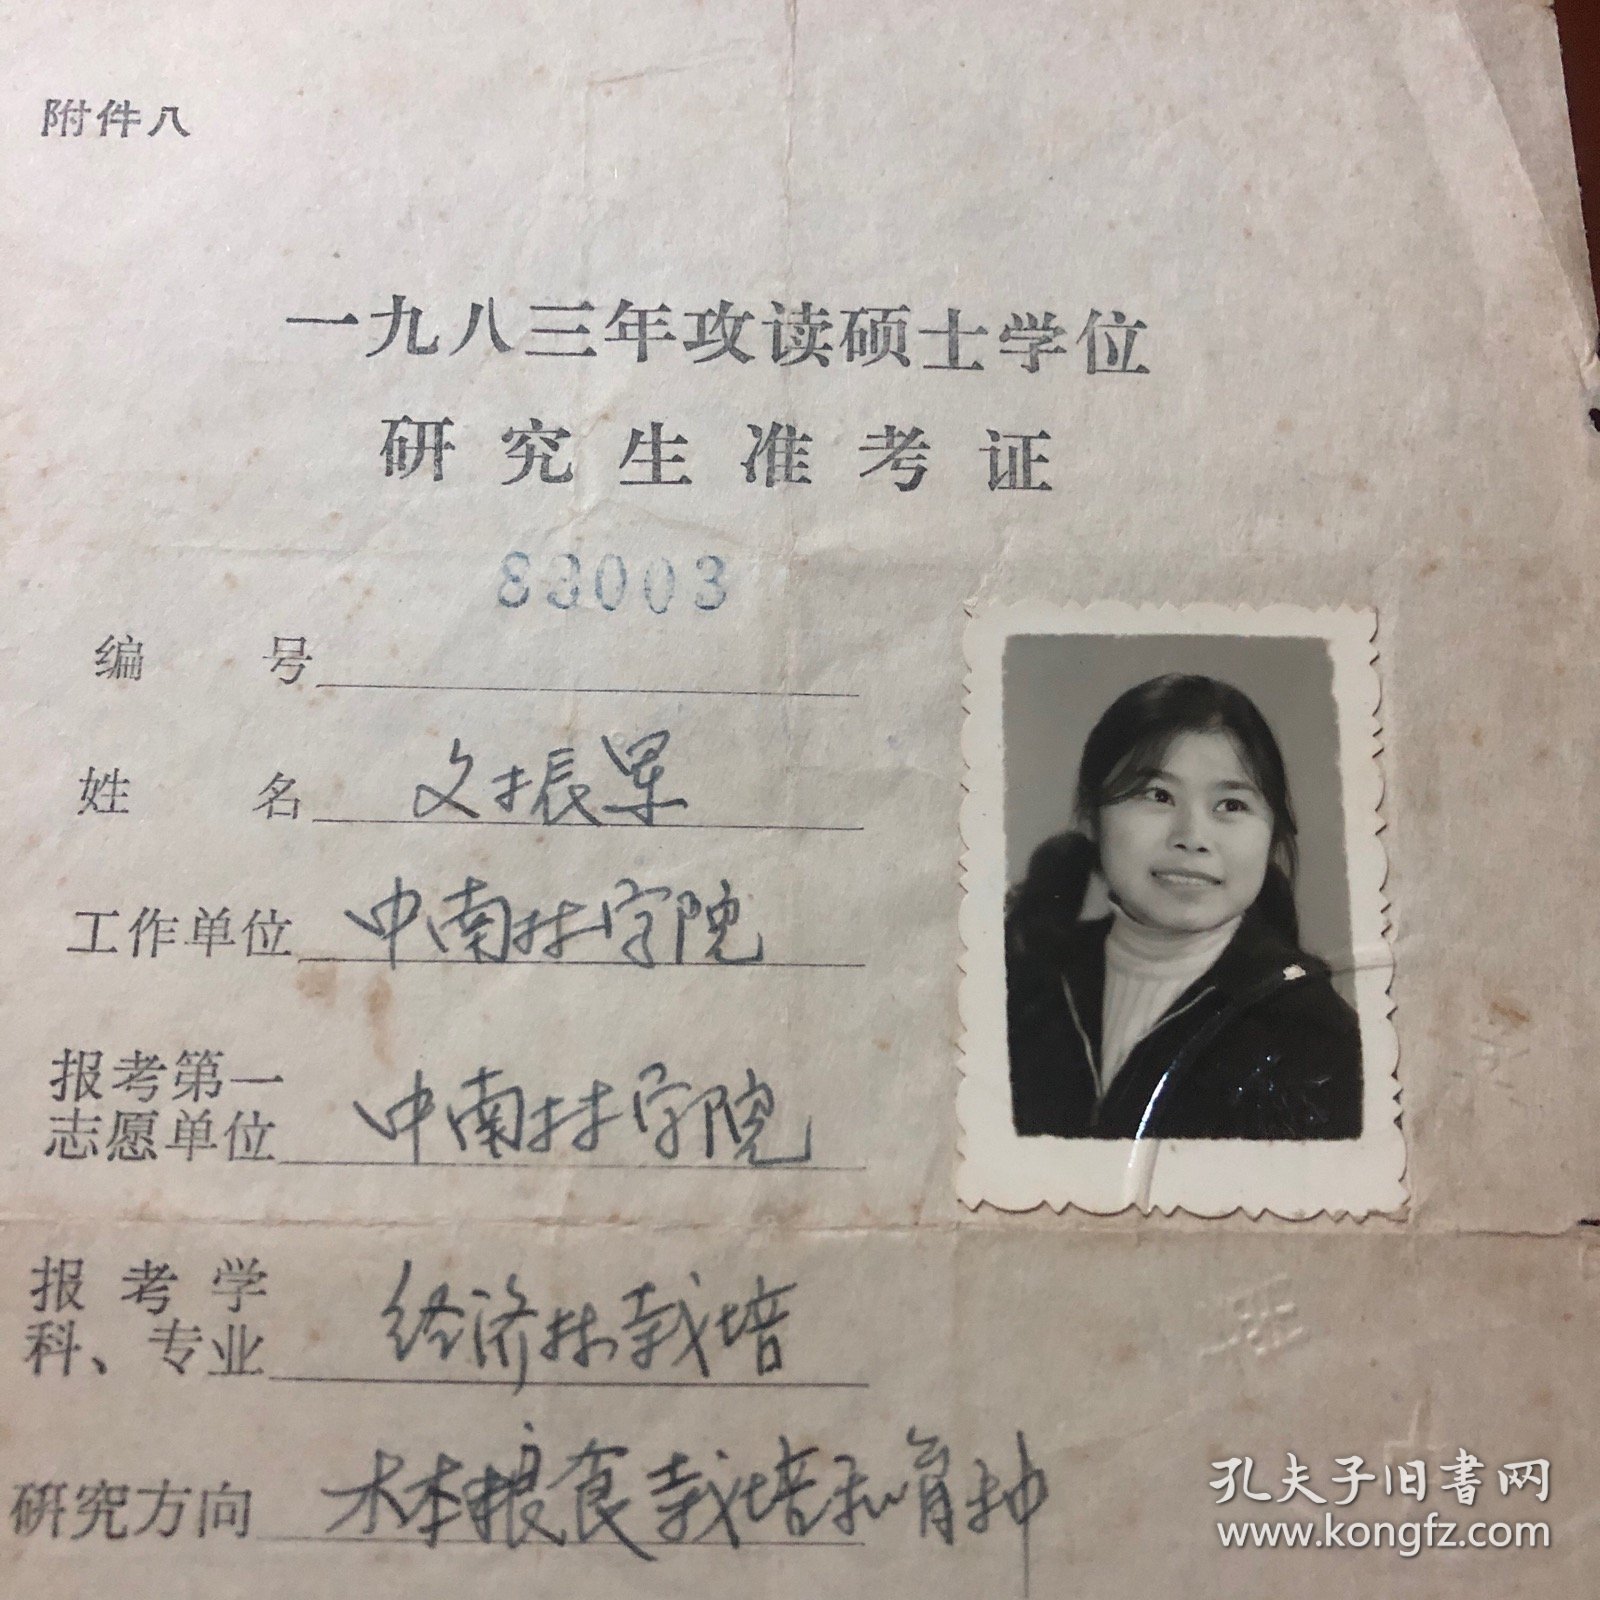 附件八
一九八三年攻读硕士学位
研究生准考证
83003
编号
姓名 文振军
工作单位 中南林学院
报考第一
志愿单位 中南林学院
报考学
科、专业 经济林栽培
研究方向 木本粮食栽培和育种
孔夫子旧书网
www.kongfz.com